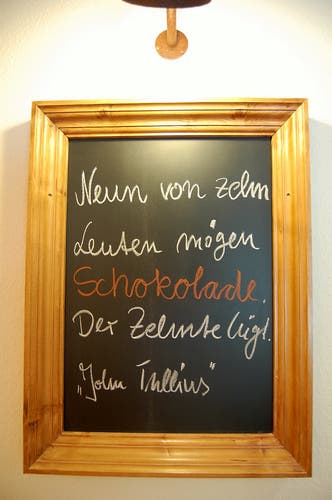 Neun von zehn
Leuten mögen
Schokolade.
Der Zehnte lügt.
„John Tullius"